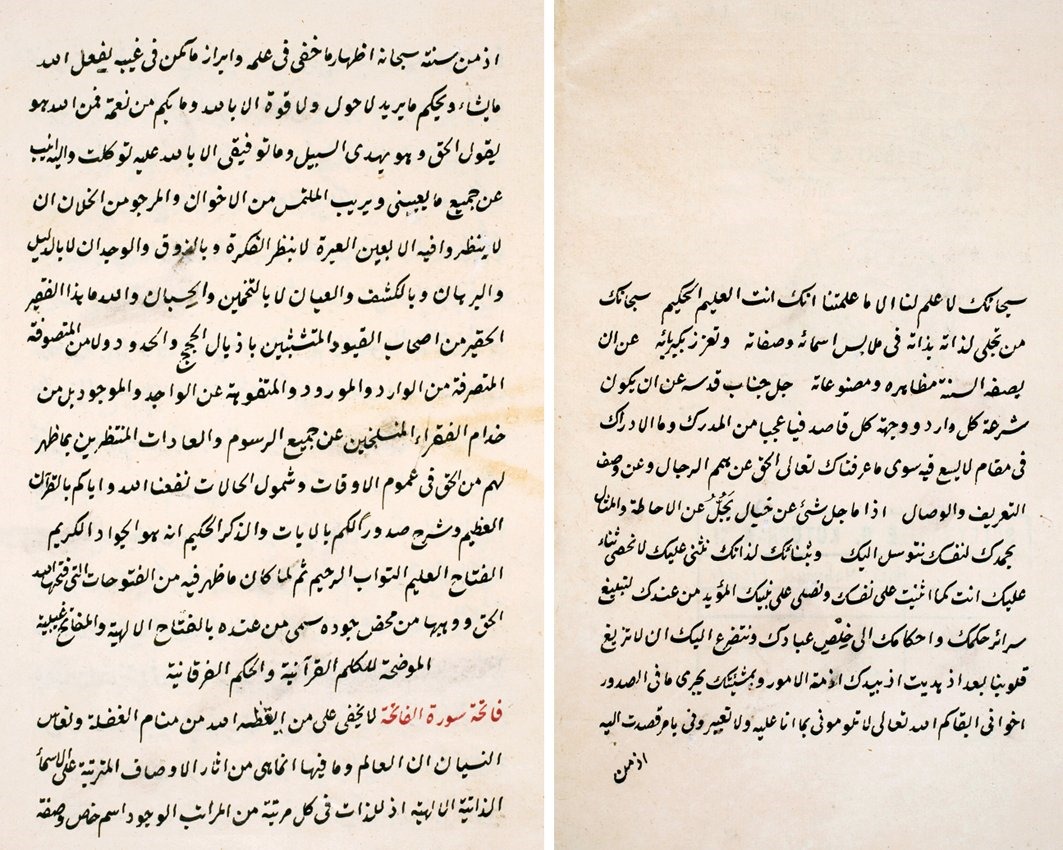 سبحانك لا علم لنا الا ما علمتنا انك انت العليم الحكيم سبحانك
من تجلى لذاته بذاته فى ملابس اسمائه وصفاته وتعزز بكبريائه عن ان
يصفه السنة مظاهره ومصنوعاته جل جناب قدسه عن ان يكون
شرعة كل وارد ووجهة كل قاصد فيا عجبا من المدرك وما الادراك
فى مقام لا يسع فيه سوى ما عرفناك تعالى الحق عن بهم الرجال وعن وصف
التعريف والوصال اذا ما جل شئ عن خيال يجل عن الاحاطة والمنال
بحمدك لنفسك نتوسل اليك وبثنائك لذاتك نثنى عليك لا نحصى ثناء
عليك انت كما اثنيت على نفسك ونصلى على نبيك المؤيد من عندك لتبليغ
سرائر حكمك واحكامك الى خلص عبادك ونتضرع اليك ان لا تزيغ
قلوبنا بعد اذ هديت اذ بيدك ازمة الامور وبمشيتك يجرى ما فى الصدور
اخوانى ابقاكم الله تعالى لا تلومونى بما انا عليه ولا تعيبرونى بامر قصدت اليه
اذ من
اذ من سنته سبحانه اظهار ما خفى فى علمه وابراز ما كمن فى غيبه يفعل الله
ما يشاء ويحكم ما يريد لا حول ولا قوة الا بالله وما بكم من نعمة فمن الله هو
يقول الحق وهو يهدى السبيل وما توفيقى الا بالله عليه توكلت واليه انيب
عن جميع ما يعيبنى ويريب الملتمس من الاخوان والمرجو من الخلان ان
لا ينظروا فيه الا بعين العبرة لا بنظر الفكرة وبالذوق والوجدان لا بالدليل
والبرهان وبالكشف والعيان لا بالتخمين والحسبان والله ما هذا الفقير
الحقير من اصحاب القيود المتشبثين باذيال الحجج والحدود ولا من المتصوفة
المتصرفة من الوارد والمورود والمتفوهة عن الواجد والموجود بل من
خدام الفقراء المنسلخين عن جميع الرسوم والعادات المنتظرين بما ظهر
لهم من الحق فى عموم الاوقات وشمول الحالات نفعنا الله واياكم بالقرآن
العظيم وشرح صدورنا لكم بالايات والذكر الحكيم انه هو الجواد الكريم
الفتاح العليم التواب الرحيم ثم لما كان ما ظهر فيه من الفتوحات التى فتحها الله
الحق ووهبها من محض جوده سمى من عنده بالفتاح الالهية والمفاتح الغيبية
الموضحة للكلم القرآنية والحكم الفرقانية
فاتحة سورة الفاتحة لا يخفى على من ايقظه الله من منام الغفلة ونعاس
النسيان ان العالم وما فيها انما هى من اثار الاوصاف المترتبة على الاسماء
الذاتية الالهية اذ للذات فى كل مرتبة من المراتب الوجود اسم خص وصفة